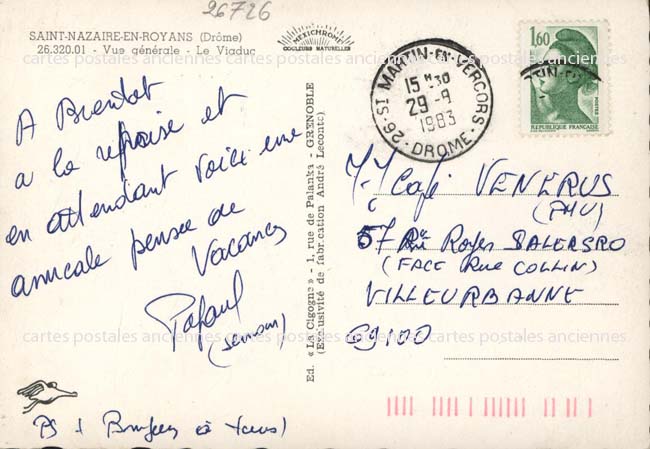 26726
SAINT-NAZAIRE-EN-ROYANS (Drôme)
26.320.01 - Vue générale - Le Viaduc
MEXICHROME
COULEURS NATURELLES
A Bientot
a la reprise et
en attendant voici une
amicale pensée de
Vacances
PS : à tous)
Ed. « La Cigogne » - 1, rue de Palanka - GRENOBLE
(Exclusivité de fabrication André Leconte)
26 · ST MARTIN-EN-VERCORS · DROME
15 H 30
29 - 9
1983
1,60
POSTES
REPUBLIQUE FRANÇAISE
TIN-EN-
Café VENERUS
(PMU)
57 Rue Roger SALENGRO
(FACE Rue COLLIN)
VILLEURBANNE
69100
cartes postales anciennes cartes postales anciennes cartes postales anciennes
cartes postales anciennes cartes postales anciennes cartes postales anciennes
cartes postales anciennes cartes postales anciennes cartes postales anciennes